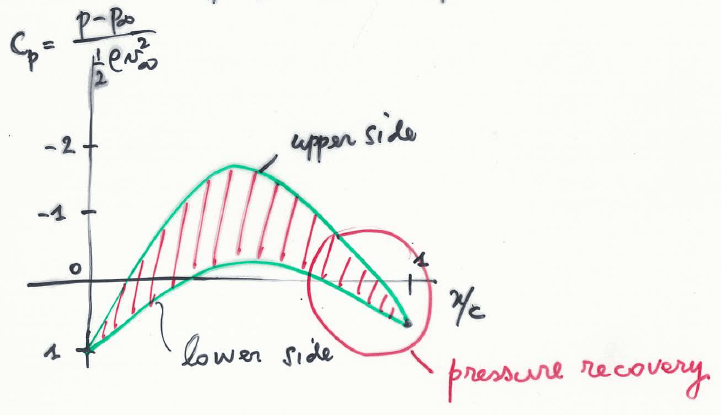 Cp = (p - p∞) / (½ ρ v∞²)
-2
upper side
-1
0
1
x/c
1
lower side
pressure recovery